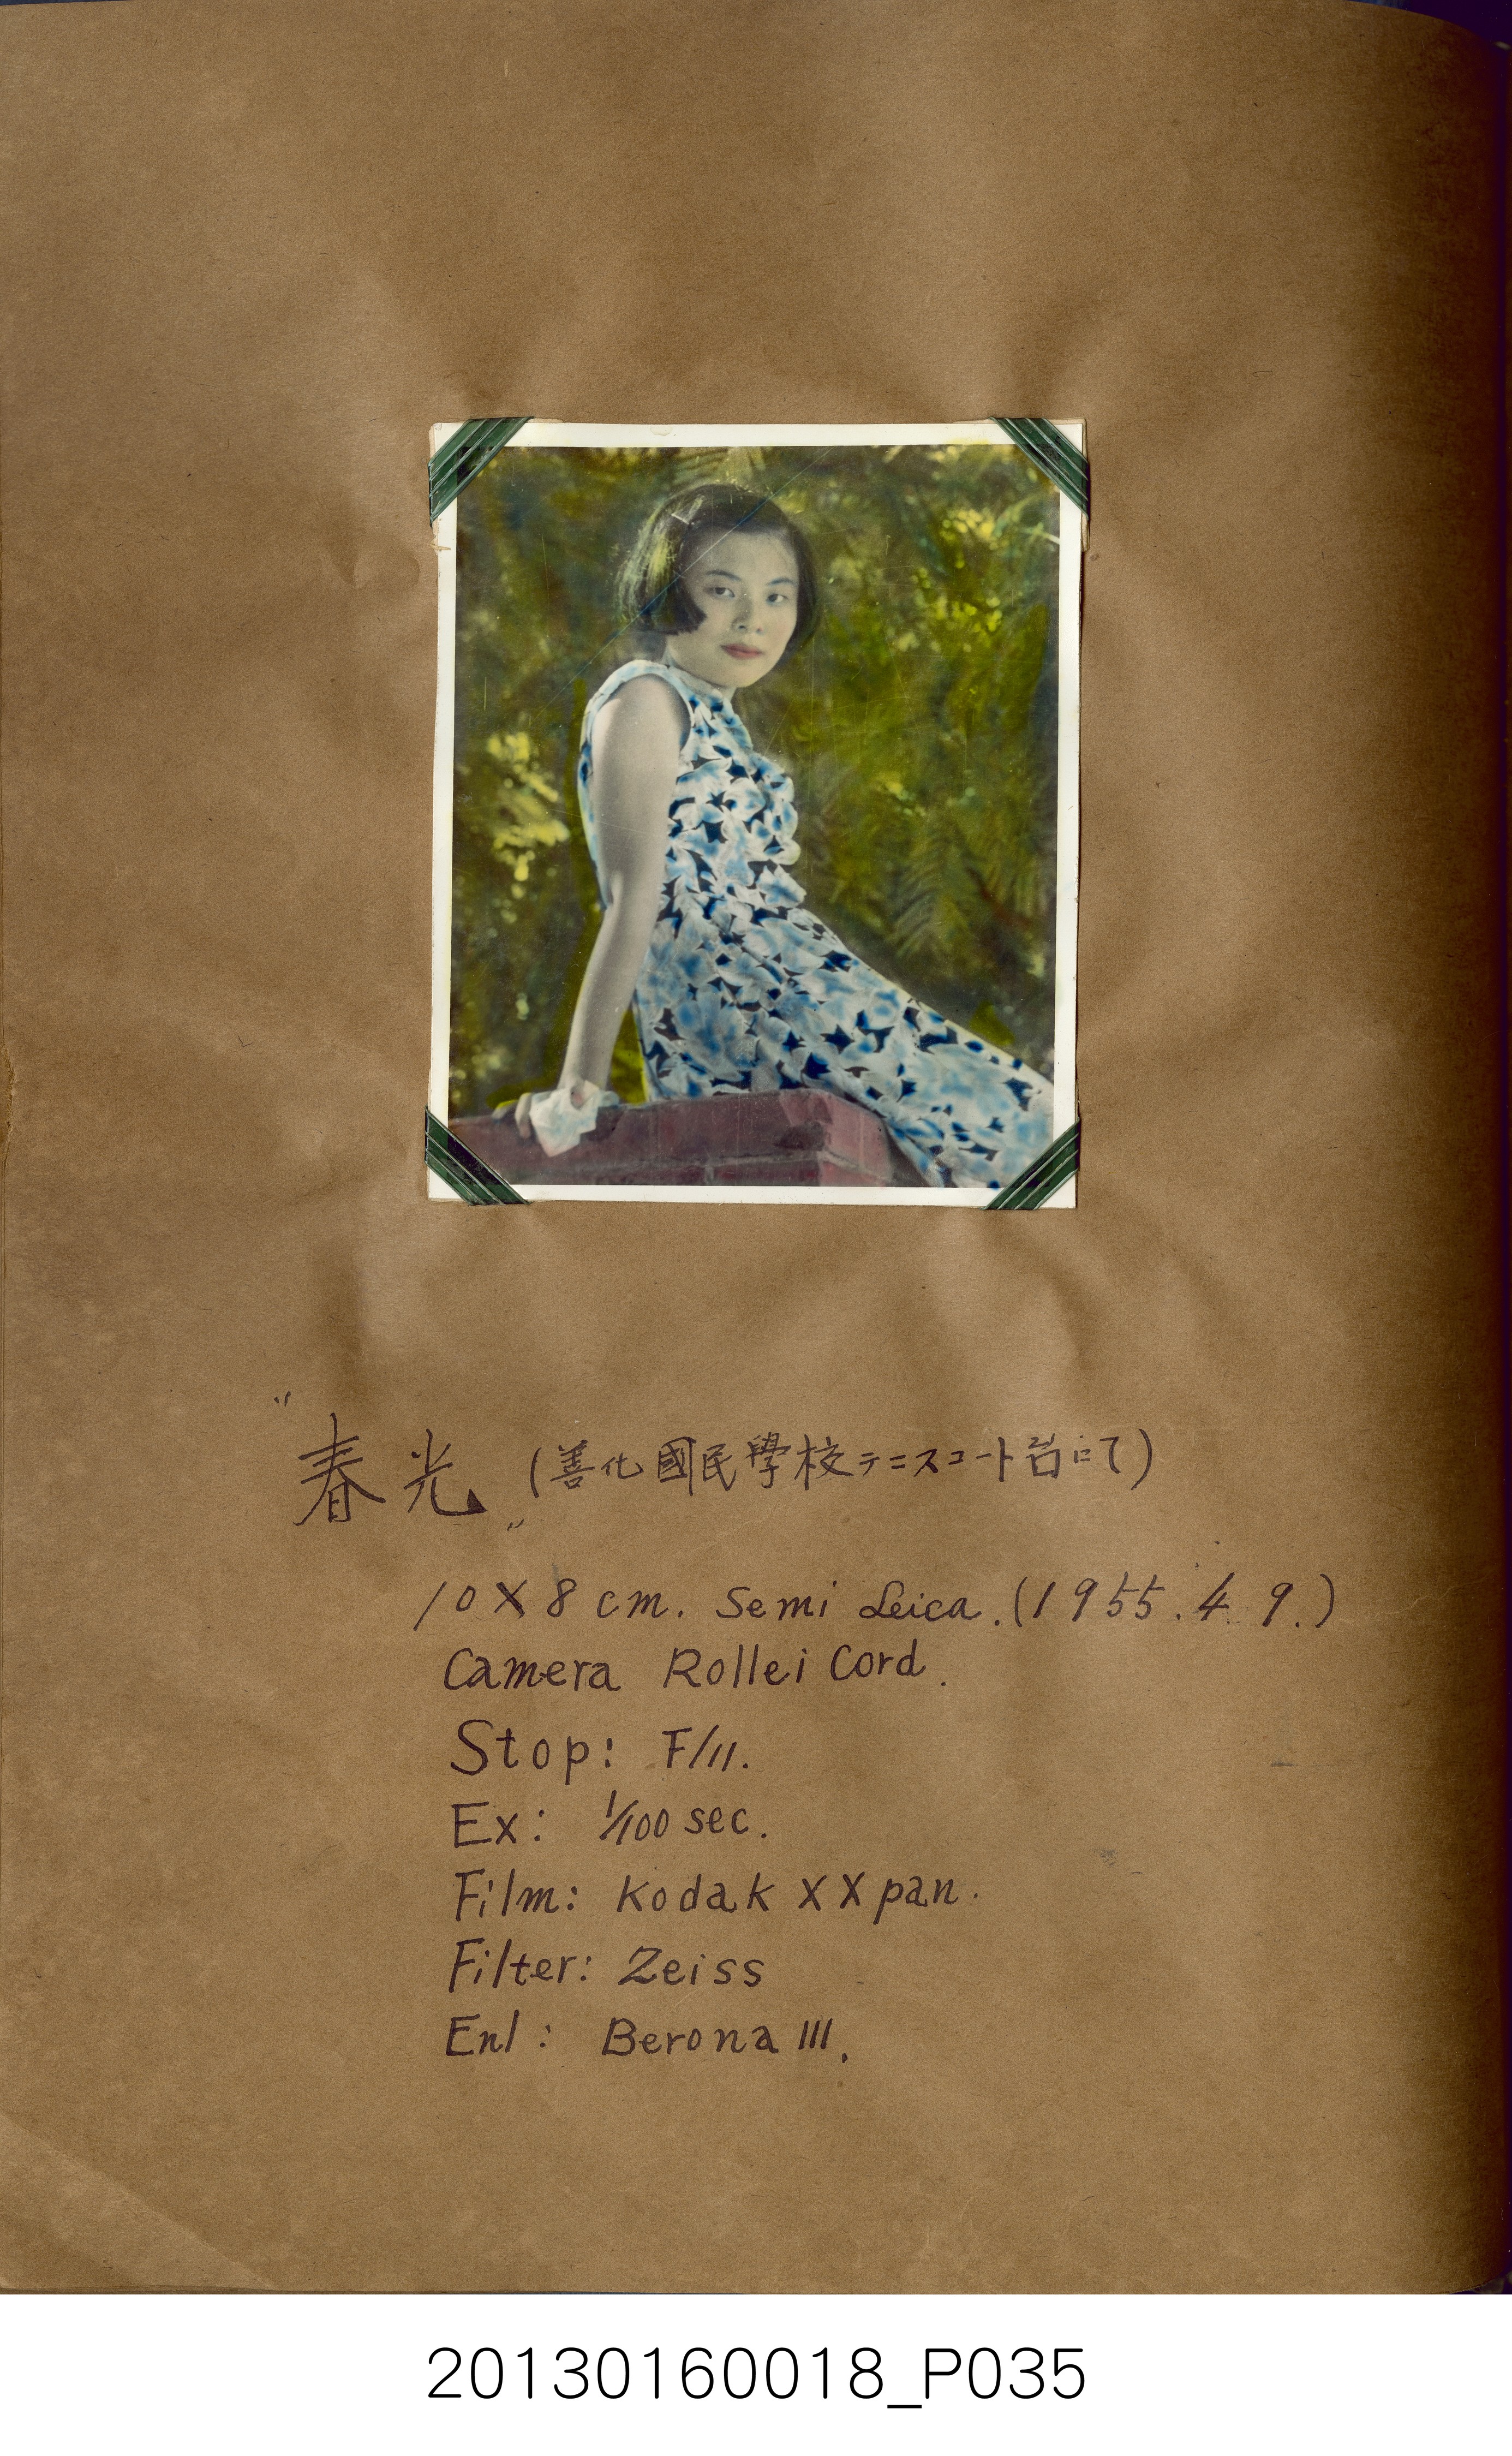 "春光" (善化國民學校テニスコート나にて)
10X8cm. Semi Leica. (1955.4 9.)
Camera Rollei Cord.
Stop: F/11.
Ex: 1/100 sec.
Film: Kodak XX pan.
Filter: Zeiss
Enl: Berona III.
20130160018_P035